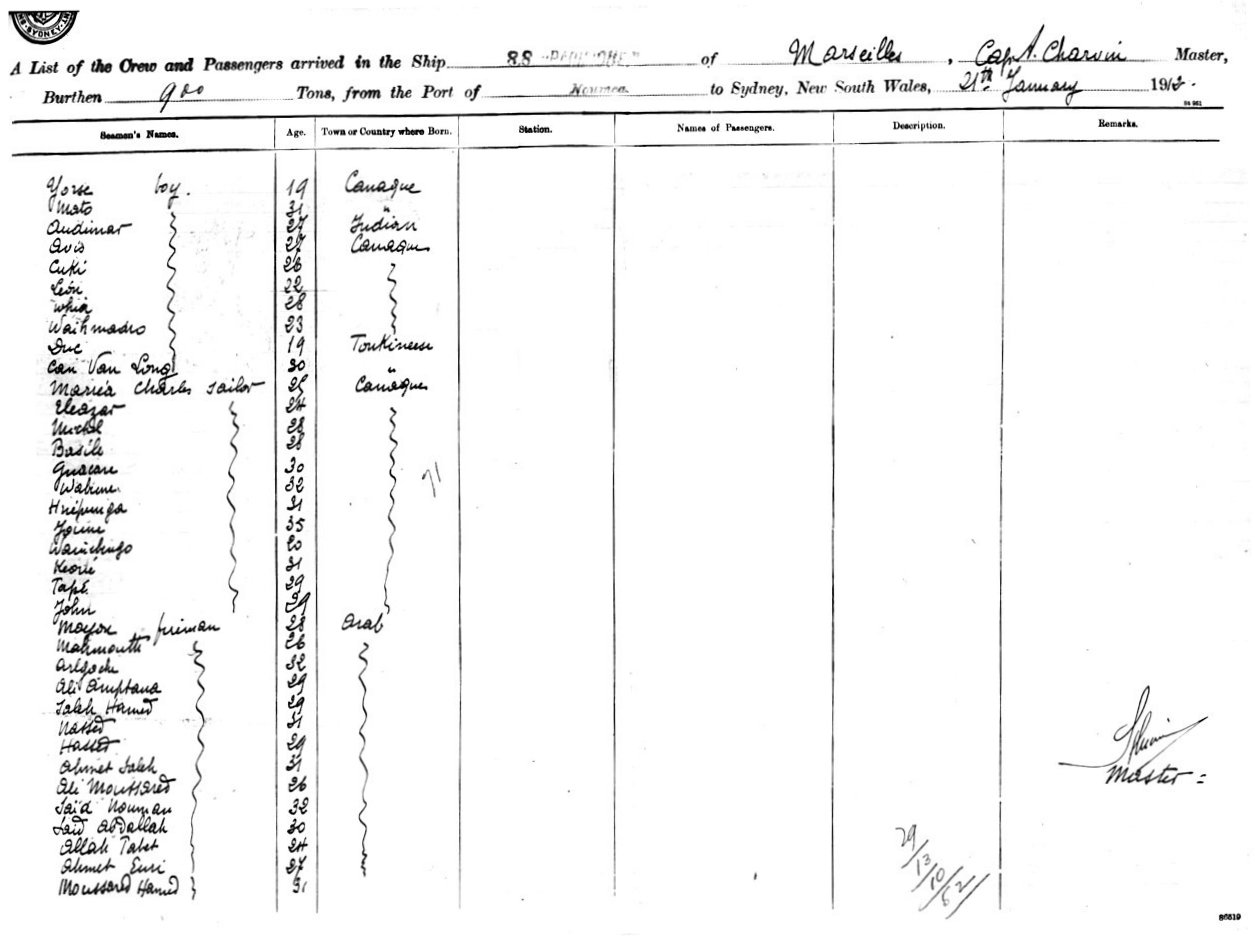 SYDNEY
A List of the Crew and Passengers arrived in the Ship SS of Marseilles, Cap A. Charvin Master,
Burthen 900 Tons, from the Port of Noumea to Sydney, New South Wales, 21th January 191
Seamen's Names. Age. Town or Country where Born. Station. Names of Passengers. Description. Remarks.
Yorse boy. 19 Canaque
Mato 31 "
Audimar 27 Indian
Avis 27 Canaque
Cuki 26
Léon 22
Whia 28
Waihmadro 23
Duc 19 Tonkinese
Can Van Long 30 "
Mariéa Charles sailor 25 Canaques
Eleazar 24
Michel 28
Basile 28
30
Wabune 32
Hnépunga 31
35
Wainchugo 20
31
Tapé 29
John 29
firiman 28 Arab
Mahmoutt 26
32
Ali Amptana 29
Saleh Hamed 29
Nassed 31
Hasset 29
Ahmet Saleh 31
Ali Moussared 26
Saïd Nouman 32
Said Abdallah 30
Allah Tabet 24
Ahmet Euri 27
Moussared Hamed 31
71
Master =
29/13/10/52/
86819